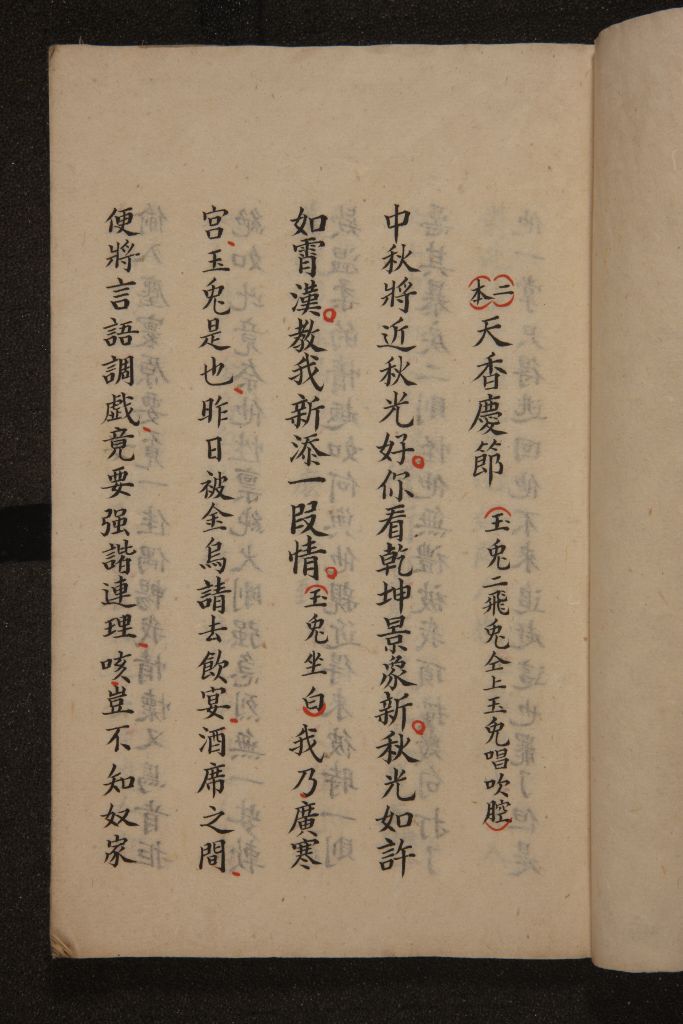 二本天香慶節玉兎二飛兎仝上玉兎唱吹腔
中秋將近秋光好你看乾坤景象新秋光如許
如霄漢教我新添一叚情玉兎坐白我乃廣寒
宮玉兎是也昨日被金烏請去飲宴酒席之間
便將言語調戲竟要强諧連理咳豈不知奴家